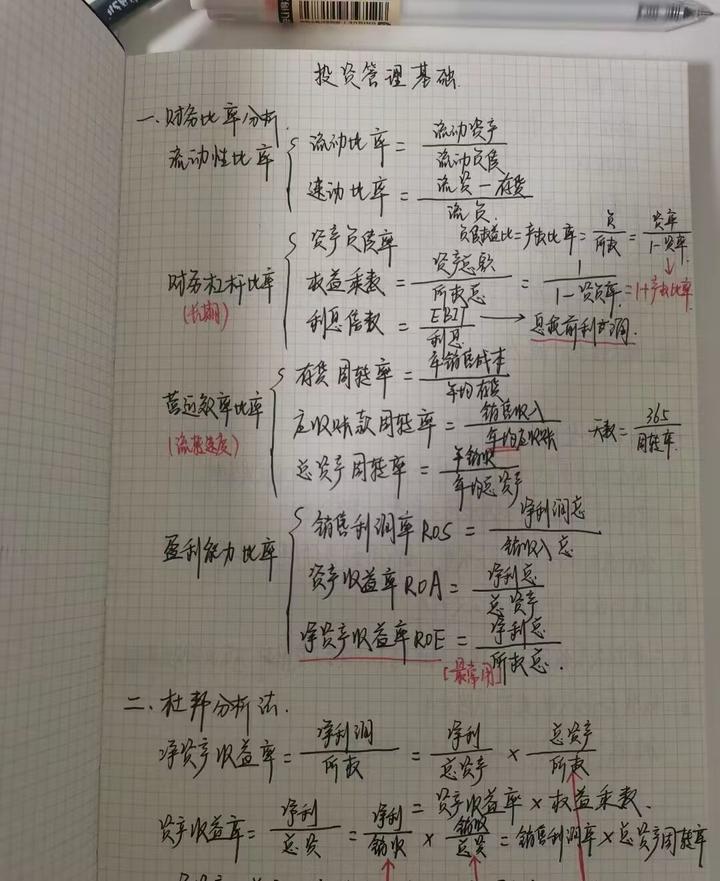 投资管理基础.
一、财务比率分析.
流动性比率
流动比率 = 流动资产 / 流动负债
速动比率 = 流资 - 存货 / 流负.
财务杠杆比率
(长期)
资产负债率
负债权益比 = 产权比率 = 负 / 所权 = 资率 / 1-资率
权益乘数 = 资产总额 / 所权总 = 1 / 1-资负率 = 1+产权比率
利息倍数 = EBIT / 利息 → 息税前利润.
营运效率比率
(流转速度)
存货周转率 = 年销售成本 / 年均存货
应收账款周转率 = 销售收入 / 年均应收账
天数 = 365 / 周转率.
总资产周转率 = 年销收 / 年均总资产
盈利能力比率
销售利润率 ROS = 净利润总 / 销收入总
资产收益率 ROA = 净利总 / 总资产
净资产收益率 ROE = 净利总 / 所权总.
[最常用]
二、杜邦分析法.
净资产收益率 = 净利润 / 所权 = 净利 / 总资产 × 总资产 / 所权
= 资产收益率 × 权益乘数.
资产收益率 = 净利 / 总资 = 净利 / 销收 × 销收 / 总资 = 销售利润率 × 总资产周转率